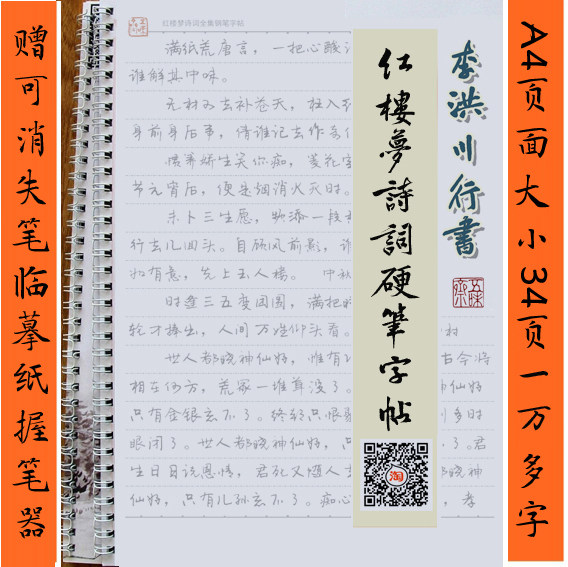 赠可消失笔临摹纸握笔器
红楼梦诗词全集钢笔字帖
满纸荒唐言，一把心酸
谁解其中味。
无材可去补苍天，枉入
身前身后事，倩谁记去作奇
惯养娇生笑你痴，菱花空
节元宵后，便是烟消火灭时。
未卜三生愿，频添一段
行去几回头。自顾风前影，谁
如有意，先上玉人楼。 中秋
时逢三五便团圆，满把
轮才捧出，人间万姓仰头看。 村
世人都晓神仙好，惟有 古今将
相在何方，荒冢一堆草没了。 神仙好
只有金银忘不了。终朝只恨聚 到多时
眼闭了。世人都晓神仙好，只 。君
生日日说恩情，君死又随人去 神
仙好，只有儿孙忘不了。痴心 ，孝
红樓夢詩詞硬筆字帖
淘
李洪川行書
A4页面大小34页一万多字